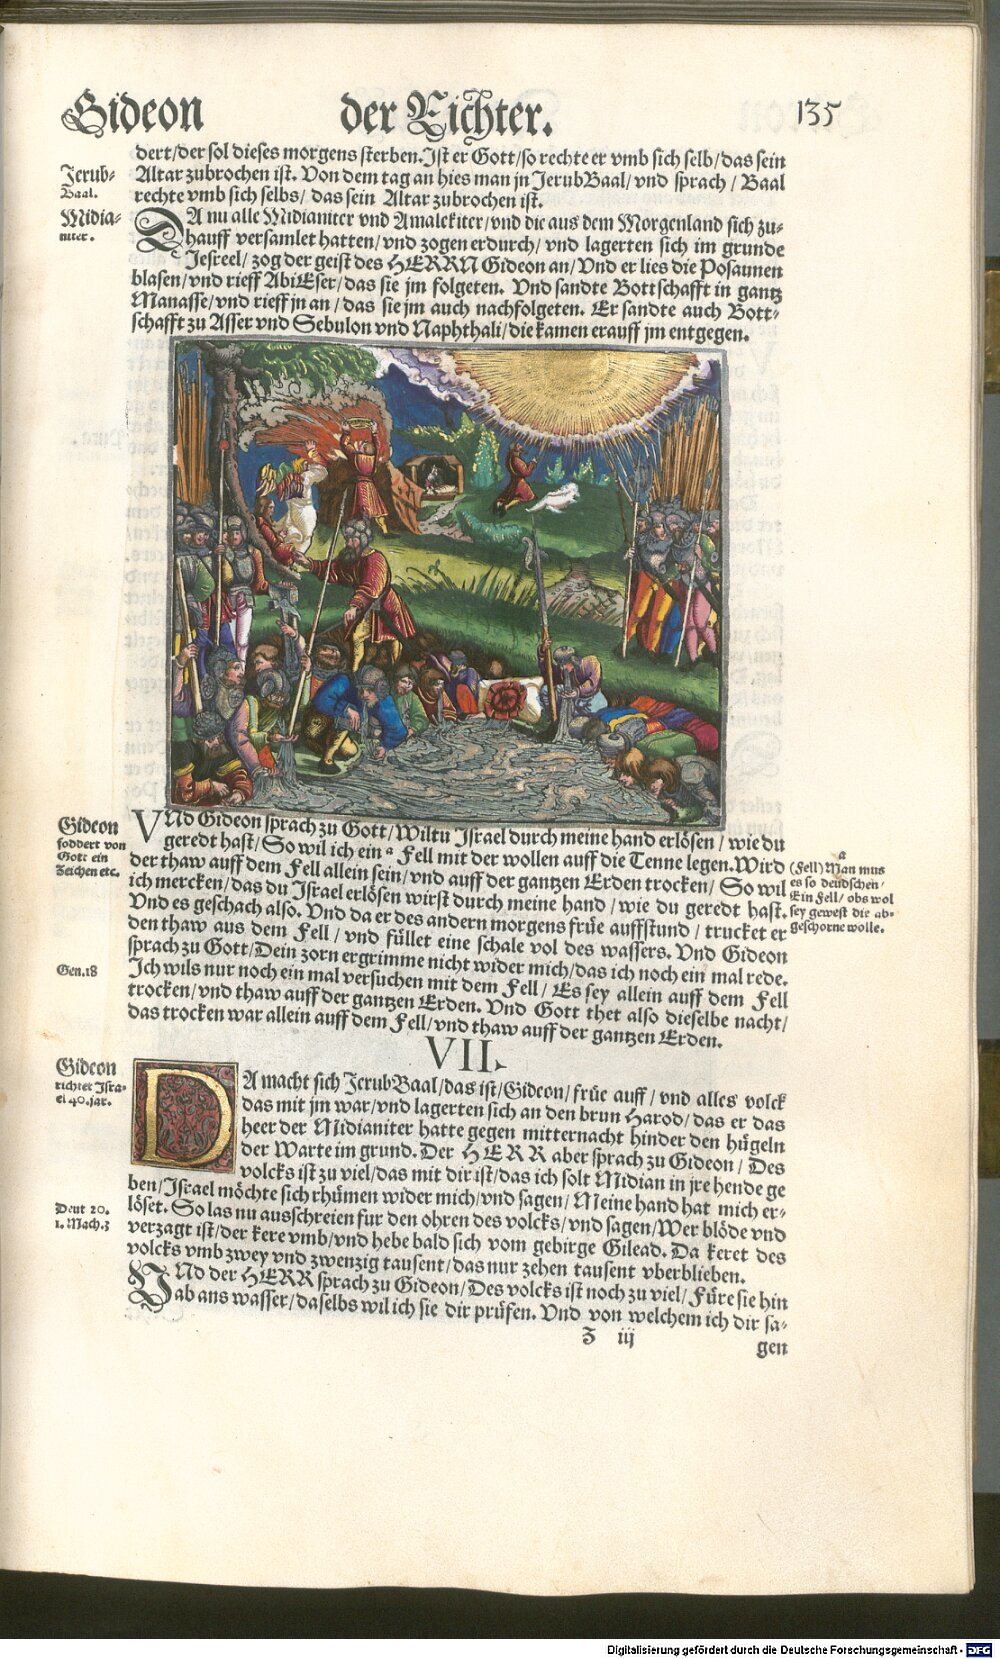 Gideon der Richter. 135
dert/der sol dieses morgens sterben. Ist er Gott/so rechte er vmb sich selb/das sein
Altar zubrochen ist. Von dem tag an hies man jn JerubBaal/vnd sprach/Baal
rechte vmb sich selbs/das sein Altar zubrochen ist.
Jerub-
Baal.
Midia-
niter.
DA nu alle Midianiter vnd Amalekiter/vnd die aus dem Morgenland sich zu-
hauff versamlet hatten/vnd zogen erdurch/vnd lagerten sich im grunde
Jesreel/zog der geist des HERRN Gideon an/Vnd er lies die Posaunen
blasen/vnd rieff AbiEser/das sie jm folgeten. Vnd sandte Bottschafft in gantz
Manasse/vnd rieff jn an/das sie jm auch nachfolgeten. Er sandte auch Bott-
schafft zu Asser vnd Sebulon vnd Naphthali/die kamen erauff jm entgegen.
Gideon
foddert von
Gott ein
Zeichen etc.
VNd Gideon sprach zu Gott/Wiltu Israel durch meine hand erlösen/wie du
geredt hast/So wil ich ein a Fell mit der wollen auff die Tenne legen. Wird
der thaw auff dem Fell allein sein/vnd auff der gantzen Erden trocken/So wil
ich mercken/das du Israel erlösen wirst durch meine hand/wie du geredt hast.
Vnd es geschach also. Vnd da er des andern morgens früe auffstund/trucket er
den thaw aus dem Fell/vnd füllet eine schale vol des wassers. Vnd Gideon
sprach zu Gott/Dein zorn ergrimme nicht wider mich/das ich noch ein mal rede.
Ich wils nur noch ein mal versuchen mit dem Fell/Es sey allein auff dem Fell
trocken/vnd thaw auff der gantzen Erden. Vnd Gott thet also dieselbe nacht/
das trocken war allein auff dem Fell/vnd thaw auff der gantzen Erden.
a
(Fell) Man mus
es so deudschen/
Ein Fell/obs wol
sey gewest die ab-
geschorne wolle.
Gen.18
VII.
Gideon
richtet Isra-
el 40.jar.
DA macht sich JerubBaal/das ist/Gideon/früe auff/vnd alles volck
das mit jm war/vnd lagerten sich an den brun Harod/das er das
heer der Midianiter hatte gegen mitternacht hinder den hügeln
der Warte im grund. Der HERR aber sprach zu Gideon/Des
volcks ist zu viel/das mit dir ist/das ich solt Midian in jre hende ge
ben/Israel möchte sich rhümen wider mich/vnd sagen/Meine hand hat mich er-
löset. So las nu ausschreien fur den ohren des volcks/vnd sagen/Wer blöde vnd
verzagt ist/der kere vmb/vnd hebe bald sich vom gebirge Gilead. Da keret des
volcks vmb zwey vnd zwenzig tausent/das nur zehen tausent vberblieben.
Deut 20.
1. Mach.3
VNd der HERR sprach zu Gideon/Des volcks ist noch zu viel/Füre sie hin
ab ans wasser/daselbs wil ich sie dir prüfen. Vnd von welchem ich dir sa-
Z iij
gen
Digitalisierung gefördert durch die Deutsche Forschungsgemeinschaft - DFG